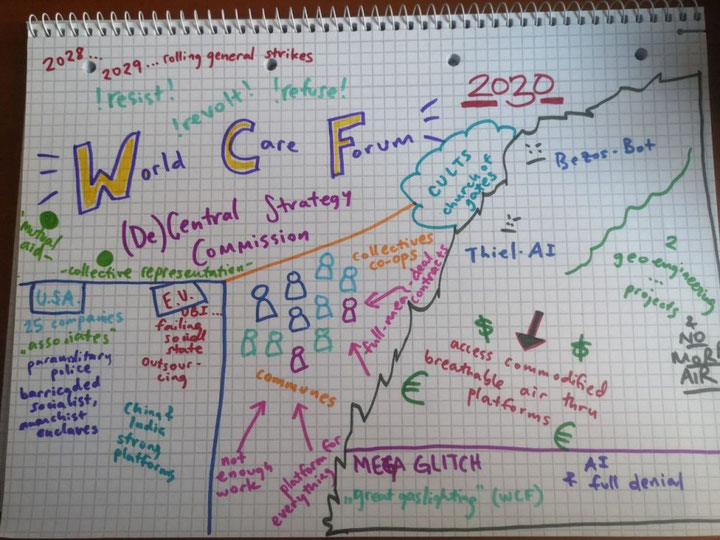 2028...
2029... rolling general strikes
!resist!
!revolt!
!refuse!
World Care Forum
(De)Central Strategy
Commission
"mutual
aid-
-collective representation-
2030
CULTS
church of
gates
Bezos-Bot
Thiel-AI
2
geo-engineering
... projects
&
NO
MORE
AIR
collectives
co-ops
full-mea-deal
contracts
communes
not
enough
work
platform for
everything
U.S.A.
25 companies
"associates"
paramilitary
police
barricaded
socialist,
anarchist
enclaves
E.U.
UBI...
failing
social
state
outsour-
cing
China &
India
strong
platforms
$
$
access commodified
breathable air thru
platforms
€
€
MEGA GLITCH
„great gaslighting" (WCF)
AI
& full denial